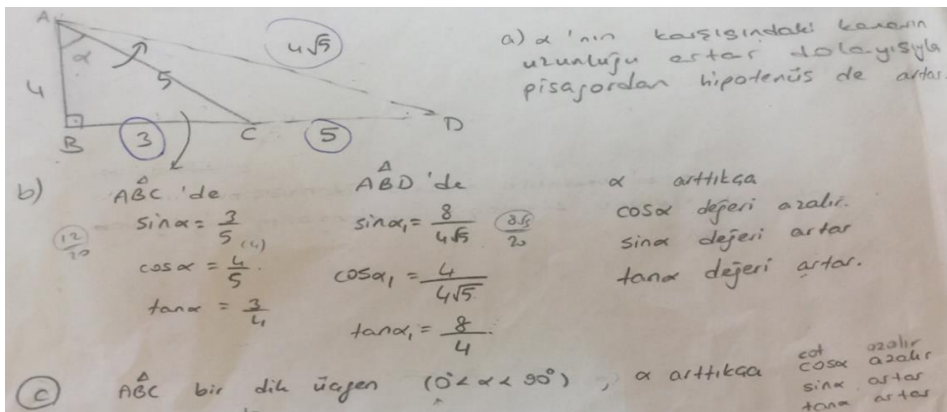 A
α
4√5
5
4
B
3
C
5
D
a) α'nın karşısındaki kenarın
uzunluğu artar dolayısıyla
pisagordan hipotenüs de artar.
b)
ABC 'de
sinα = 3/5 (4)
12/20
cosα = 4/5.
tanα = 3/4
ABD 'de
sinα₁ = 8/4√5
8√5/20
cosα₁ = 4/4√5
tanα₁ = 8/4
α arttıkça
cosα değeri azalır.
sinα değeri artar
tanα değeri artar.
c) ABC bir dik üçgen (0°<α<90°), α arttıkça
cot azalır
cosα azalır
sinα artar
tanα artar